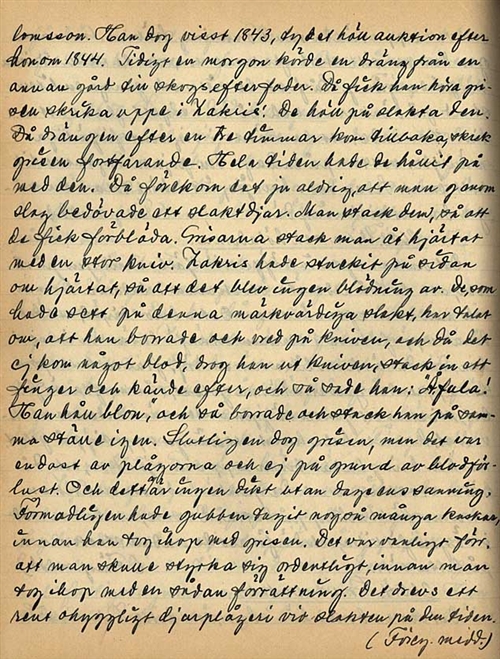 lomsson. Han dog visst 1843, ty det höll auktion efter
honom 1844. Tidigt en morgon körde en dräng från en
annan gård till skogs efter foder. Då fick han höra gri-
sen skrika uppe i Zakris'. De höll på slakta den.
Då drängen efter en tre timmar kom tillbaka, skrek
grisen fortfarande. Hela tiden hade de hållit på
med den. Då förekom det ju aldrig, att man genom
slag bedövade ett slaktdjur. Man stack dem, så att
de fick förblöda. Grisarna stack man åt hjärtat
med en stor kniv. Zakris hade stuckit på sidan
om hjärtat, så att det blev ingen blödning av. De, som
hade sett på denna märkvärdiga slakt, har talat
om, att han borrade och vred på kniven, och då det
ej kom något blod, drog han ut kniven, stack in ett
finger och kände efter, och så sade han: Å fala!
Han håll blon, och så borrade och stack han på sam-
ma ställe igen. Slutligen dog grisen, men det var
endast av plågorna och ej på grund av blodför-
lust. Och detta är ingen dikt utan dagens sanning.
Förmodligen hade gubben tagit nog så många kaskar,
innan han tog ihop med grisen. Det var vanligt förr,
att man skulle styrka sig ordentligt, innan man
tog ihop med en sådan förrättning. Det drevs ett
rent ohyggligt djurplågeri vid slakten på den tiden.
(Föreg. medd.)